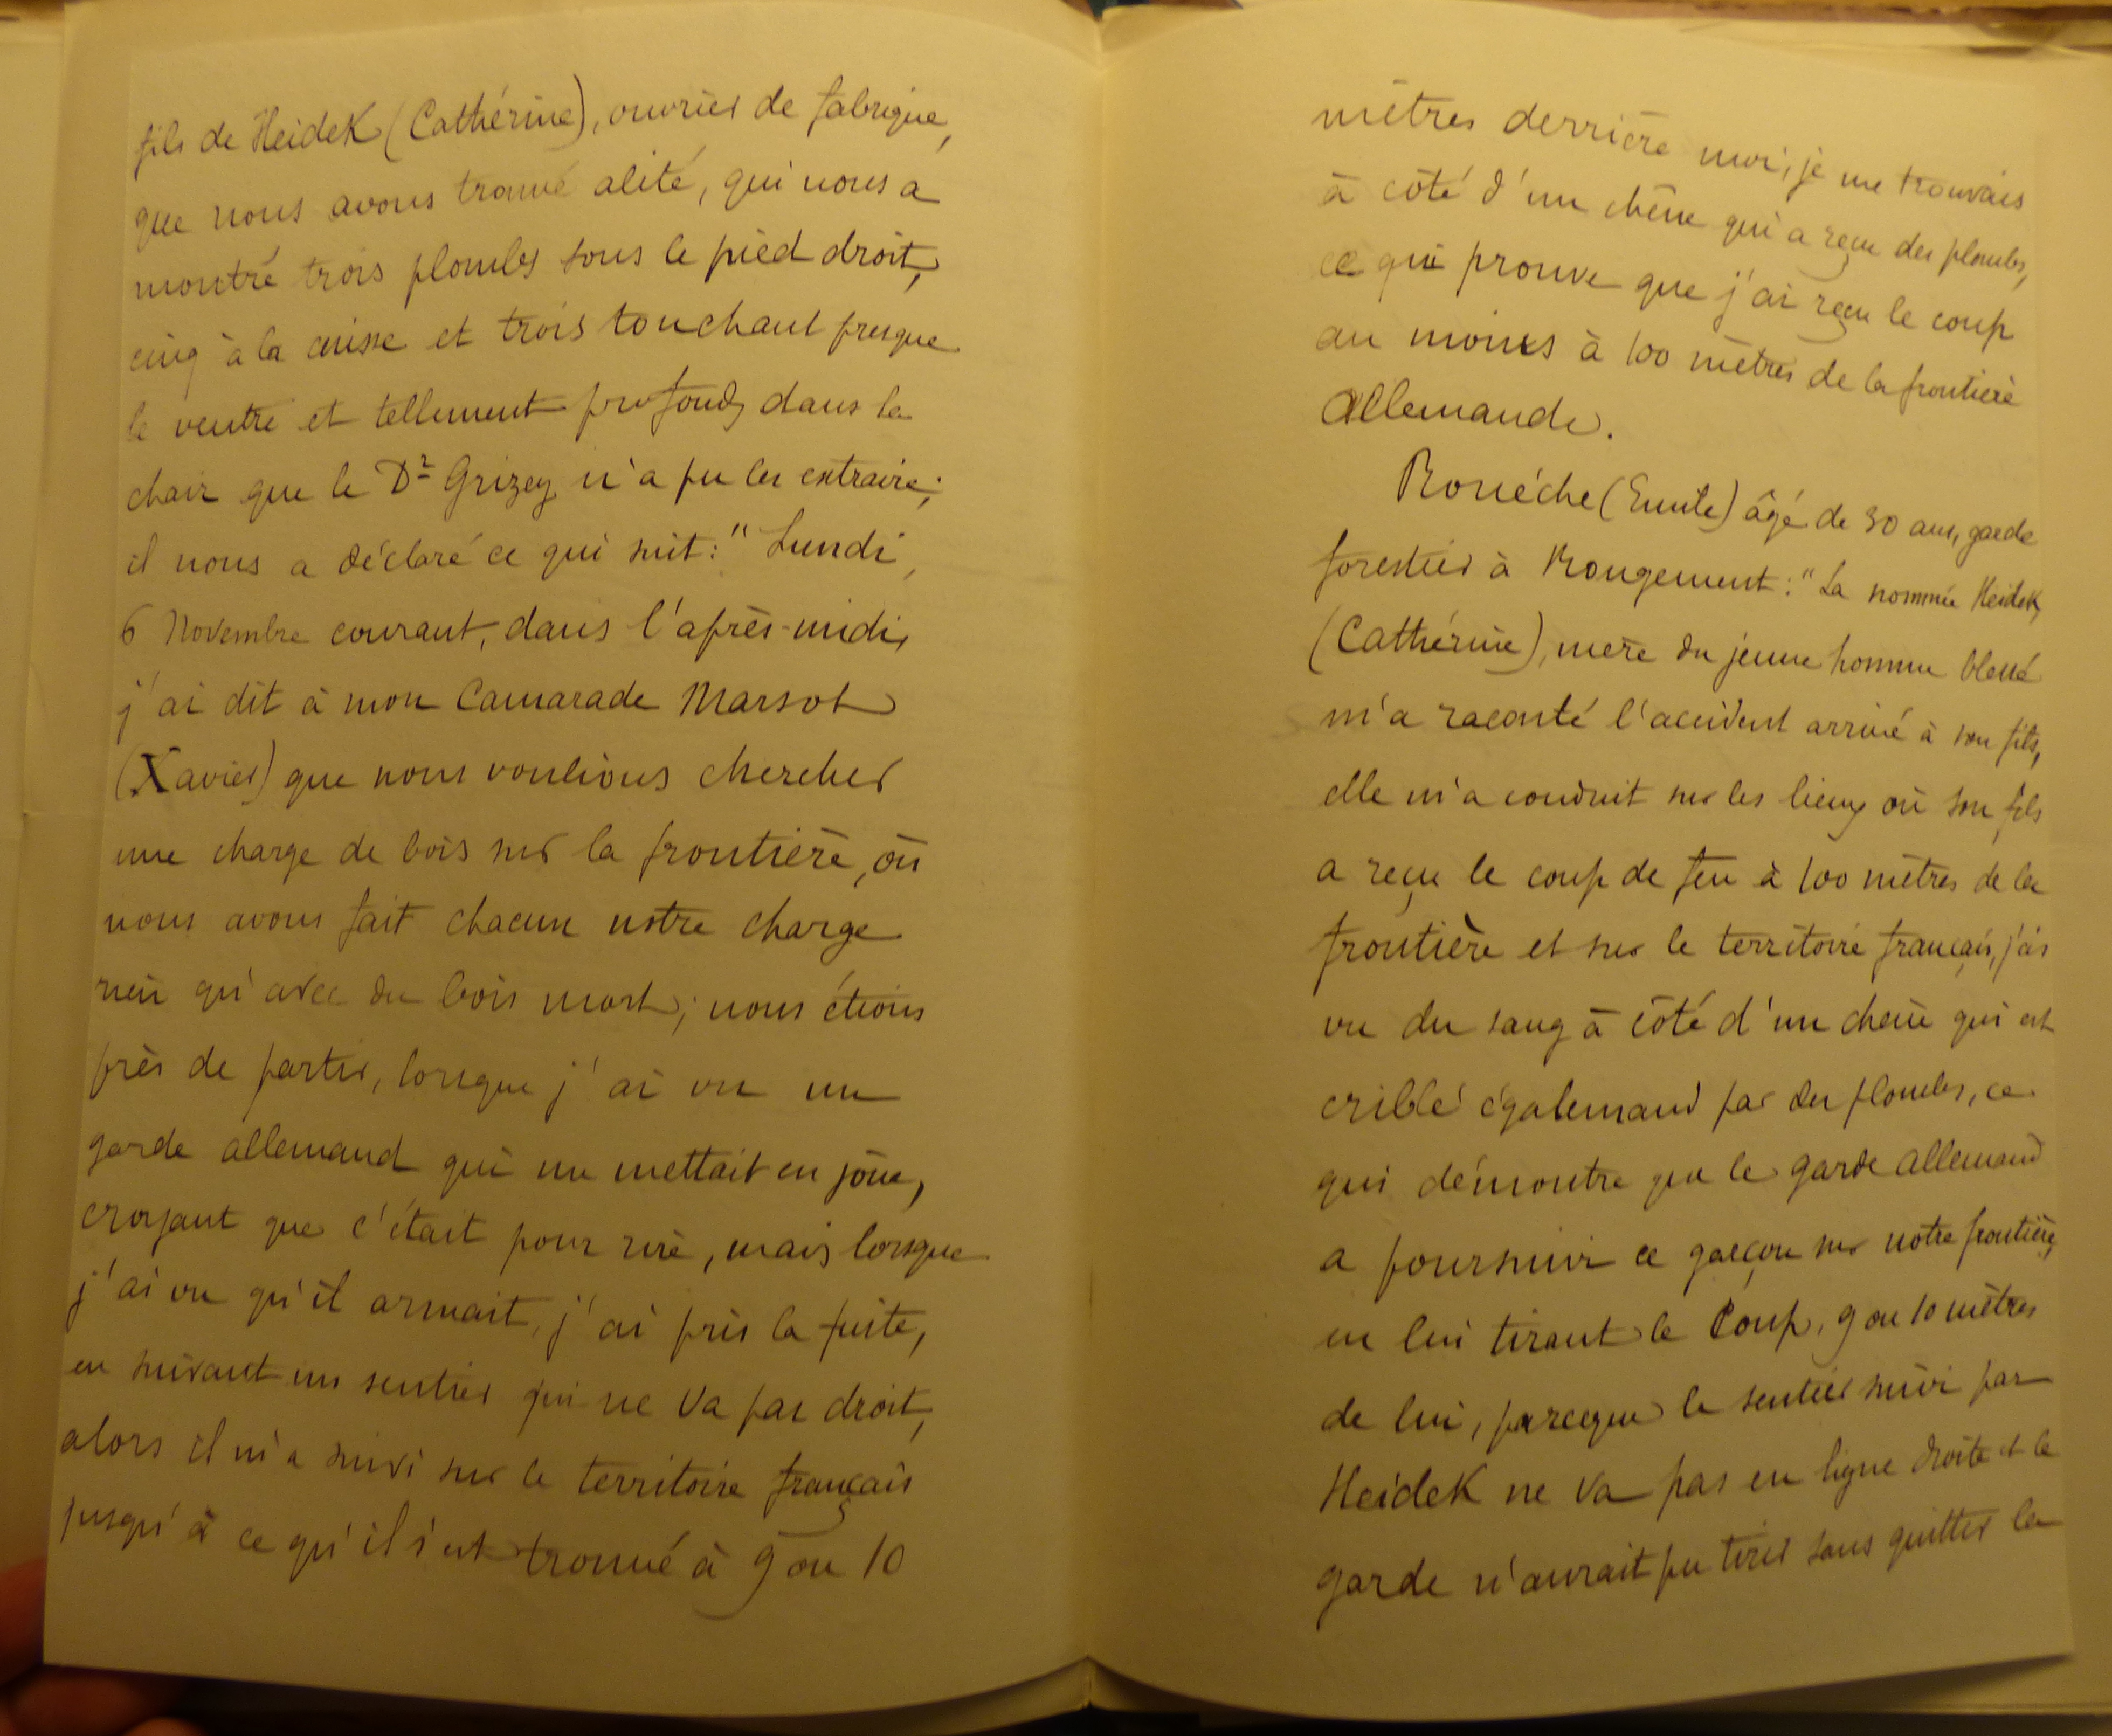 fils de Heidek (Cathérine), ouvrier de fabrique,
que nous avons trouvé alité, qui nous a
montré trois plombs sous le pied droit,
cinq à la cuisse et trois touchant presque
le ventre et tellement profonds dans la
chair que le Dr Grizey n'a pu les extraire;
il nous a déclaré ce qui suit: "Lundi,
6 Novembre courant, dans l'après-midi,
j'ai dit à mon Camarade Marsot
(Xavier) que nous voulions chercher
une charge de bois sur la frontière, où
nous avons fait chacun notre charge
rien qu'avec du bois mort; nous étions
près de partir, lorsque j'ai vu un
garde allemand qui me mettait en joue,
croyant que c'était pour rire, mais lorsque
j'ai vu qu'il armait, j'ai pris la fuite,
en suivant un sentier qui ne va pas droit,
alors il m'a suivi sur le territoire français
jusqu'à ce qu'il s'est trouvé à 9 ou 10
mètres derrière moi, je me trouvais
à côté d'un chêne qui a reçu des plombs,
ce qui prouve que j'ai reçu le coup
au moins à 100 mètres de la frontière
Allemande.
Rouéche (Emile) âgé de 30 ans, garde
forestier à Rougement: "La nommée Heidek,
(Cathérine), mère du jeune homme blessé
m'a raconté l'accident arrivé à son fils,
elle m'a conduit sur les lieux où son fils
a reçu le coup de feu à 100 mètres de la
frontière et sur le territoire français, j'ai
vu du sang à côté d'un chêne qui est
criblé égalemend par des plombs, ce
qui démontre que le garde allemand
a poursuivi ce garçon sur notre frontière,
en lui tirant le Coup, 9 ou 10 mètres
de lui, parceque le sentier suivi par
Heidek ne va pas en ligne droite et le
garde n'aurait pu tirer sans quitter la